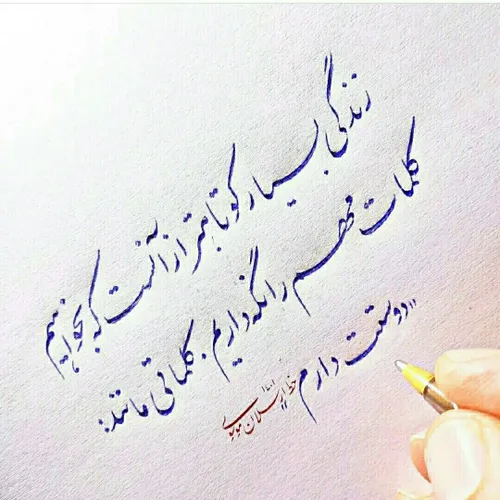 زندگی بسیار کوتاهتر از آنست که بخواهیم
کلمات مهم را نگه داریم. کلماتی مانند:
«دوستت دارم
خط ارسلان موسوی